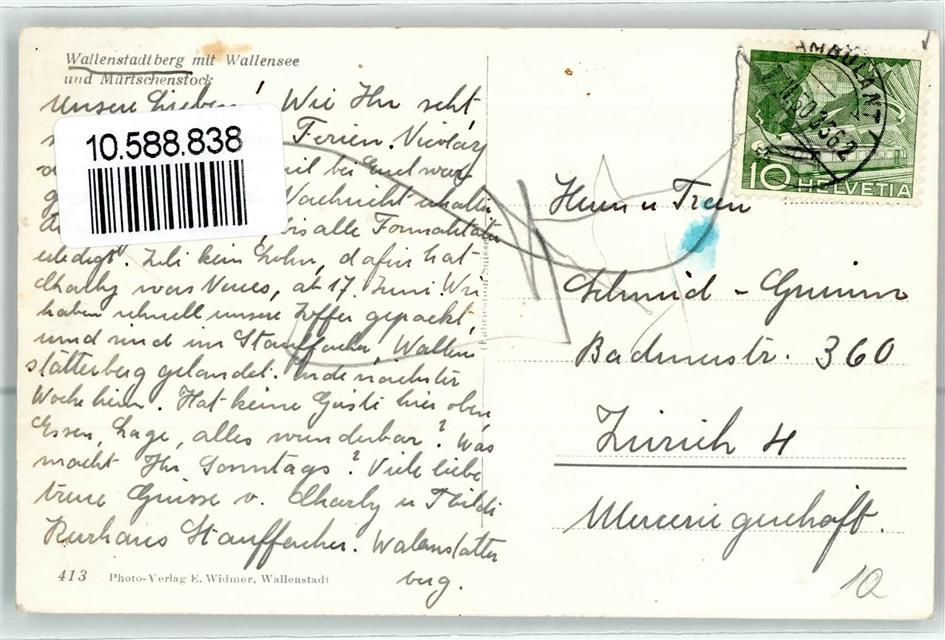 Wallenstadtberg mit Wallensee
und Mürtschenstock
Unsere Lieben! Wie Ihr seht,
Ferien.
10.588.838
bei Euch
Nachricht erhalten
bis alle Formalitäten
erledigt. kein Lohn, dafür hat
Charly was Neues, ab 17. Juni. Wir
haben schnell unsere Koffer gepackt,
und sind im Stauffacher, Wallen
stätterberg gelandet. Ende nächster
Woche heim. Hat keine Gäste hier oben
Essen, Lage, alles wunderbar? Was
macht Ihr Sonntags? Viele liebe
treue Grüsse v. Charly u
Kurhaus Stauffacher. Walenstatter
berg.
413 Photo-Verlag E. Widmer, Wallenstadt
AMBULANT
10 HELVETIA
Herrn u Frau
Schmid - Grimm
Badenerstr. 360
Zürich 4
Merceriegeschäft.
10